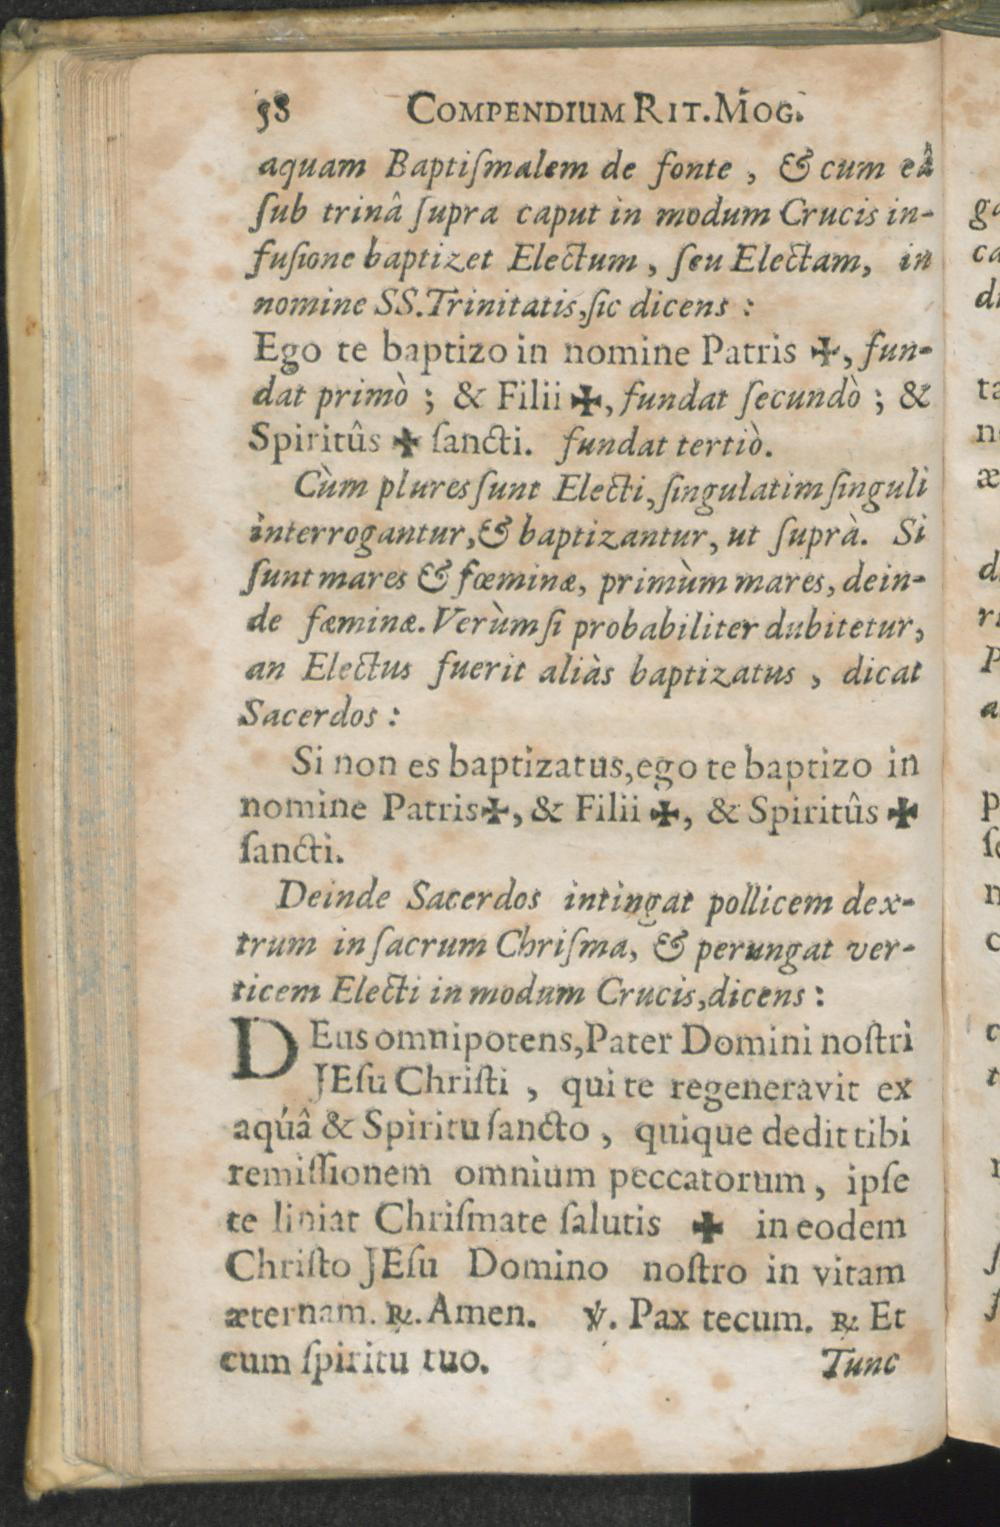 58 COMPENDIUM RIT. MOG.
aquam Baptiſmalem de fonte , & cum eâ
ſub trinâ ſupra caput in modum Crucis in-
fuſione baptizet Electum , ſeu Electam, in
nomine SS. Trinitatis, ſic dicens :
Ego te baptizo in nomine Patris ✠, fun-
dat primò ; & Filii ✠, fundat ſecundò ; &
Spiritûs ✠ ſancti. fundat tertiò.
Cùm plures ſunt Electi, ſingulatim ſinguli
interrogantur, & baptizantur, ut ſuprà. Si
ſunt mares & fœminæ, primùm mares, dein-
de fæminæ. Verùm ſi probabiliter dubitetur,
an Electus fuerit aliàs baptizatus , dicat
Sacerdos :
Si non es baptizatus, ego te baptizo in
nomine Patris ✠, & Filii ✠, & Spiritûs ✠
ſancti.
Deinde Sacerdos intingat pollicem dex-
trum in ſacrum Chriſma, & perungat ver-
ticem Electi in modum Crucis, dicens :
DEus omnipotens, Pater Domini noſtri
JEſu Chriſti , qui te regeneravit ex
aquâ & Spiritu ſancto , quique dedit tibi
remiſſionem omnium peccatorum , ipſe
te liniat Chriſmate ſalutis ✠ in eodem
Chriſto JEſu Domino noſtro in vitam
æternam. ℞. Amen. ℣. Pax tecum. ℞ Et
cum ſpiritu tuo. Tunc